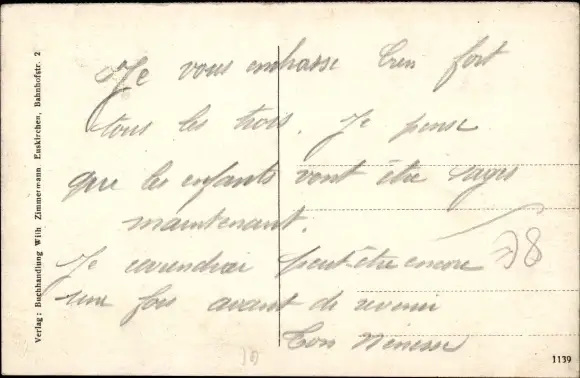 Je vous embrasse bien fort
tous les trois. Je pense
que les enfants vont être sages
maintenant.
Je peut-être encore
une fois avant de revenir
Ton
78
Verlag: Buchhandlung Wilh Zimmermann Euskirchen, Bahnhofstr. 2
1139